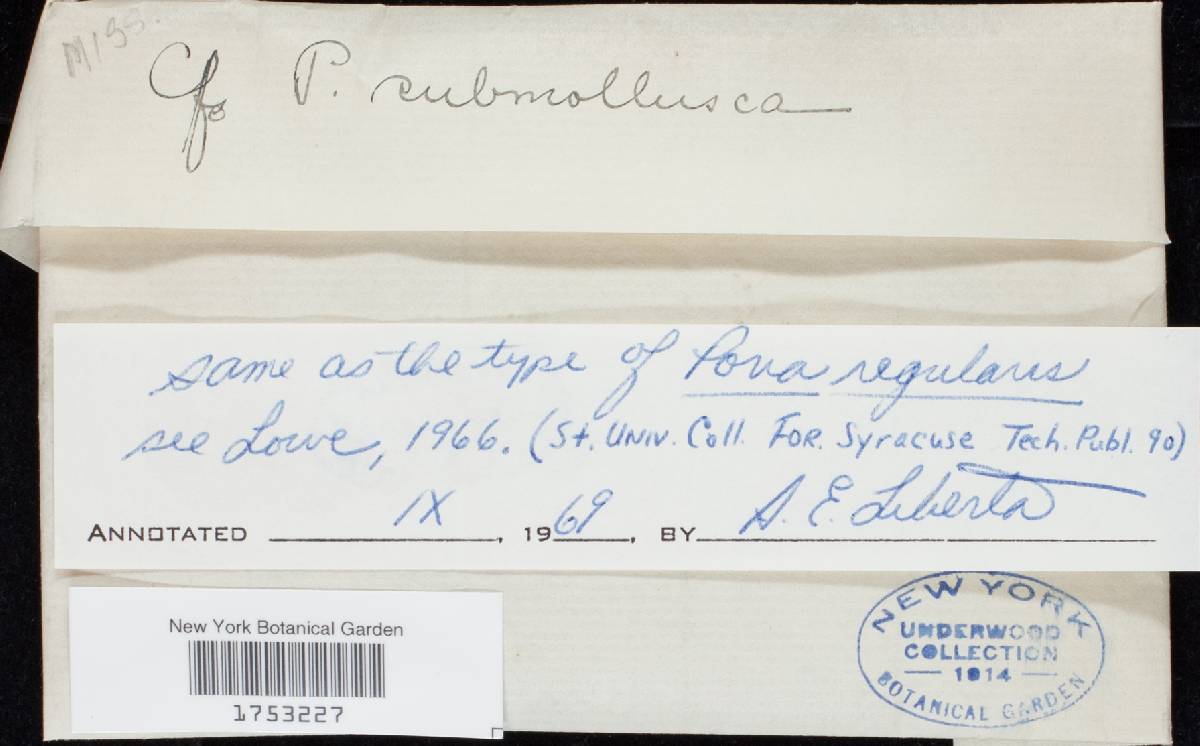 Miss.
Cf. P. submollusca
same as the type of Poria regularis
see Lowe, 1966. (St. Univ. Coll. For. Syracuse Tech. Publ. 90)
ANNOTATED IX, 1969, BY A. E. Liberta
New York Botanical Garden
1753227
NEW YORK
UNDERWOOD
COLLECTION
1914
BOTANICAL GARDEN